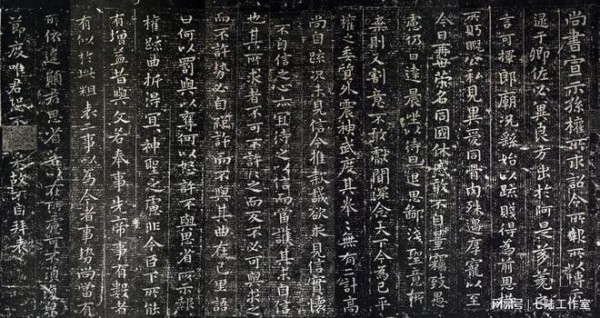 尚書宣示孫權所求詔令所報所以博示
逮于卿佐必冀良方出於阿是芻蕘之
言可擇郎廟況繇始以疏賤得為前恩橫
所盼睨公私見異愛同骨肉殊遇厚寵以至
今日再世榮名同國休慼敢不自量竊致愚
慮仍日達晨坐以待旦退思鄙淺聖意所
棄則又割意不敢獻聞深念天下今為已平
權之委質外震神武度其拳拳無有二計高
尚自疏況未見信今推款誠欲求見信實懷
不自信之心亦宜待之以信而當護其未自信
也其所求者不可不許許之而反不必可與求之
而不許勢必自絕許而不與其曲在己里語
曰何以罰與以奪何以怒許不與思省所示報
權疏曲折得宜神聖之慮非今臣下所能
有增益昔與文若奉事先帝事有數者
有似於此粗表二事以為今者事勢尚當有
所依違願君思省若以在所慮可不須復貌
節度唯君恐不可采故不自拜表
网易号 | 七陆工作室